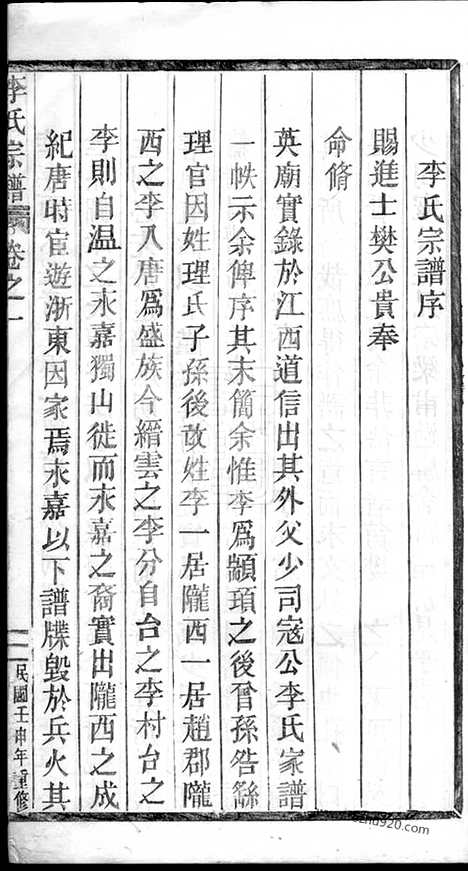 李氏宗譜序
賜進士樊公貴奉
命脩
英廟實錄於江西道信出其外父少司寇公李氏家譜
一帙示余俾序其末簡余惟李爲顓頊之後曾孫咎繇
理官因姓理氏子孫後改姓李一居隴西一居趙郡隴
西之李入唐爲盛族今縉雲之李分自台之李村台之
李則自温之永嘉獨山徙而永嘉之裔實出隴西之成
紀唐時宦遊浙東因家焉永嘉以下譜牒毀於兵火其
李氏宗譜 卷之一
一 民國壬申年重修